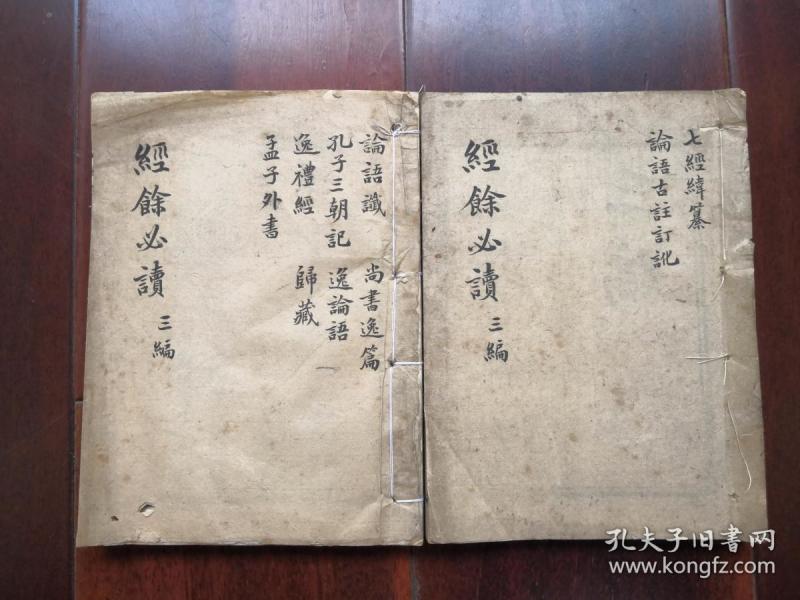 論語讖 尚書逸篇
孔子三朝記 逸論語
逸禮經 歸藏
孟子外書
經餘必讀 三編
七經緯纂
論語古註訂訛
經餘必讀 三編
孔夫子旧书网
www.kongfz.com